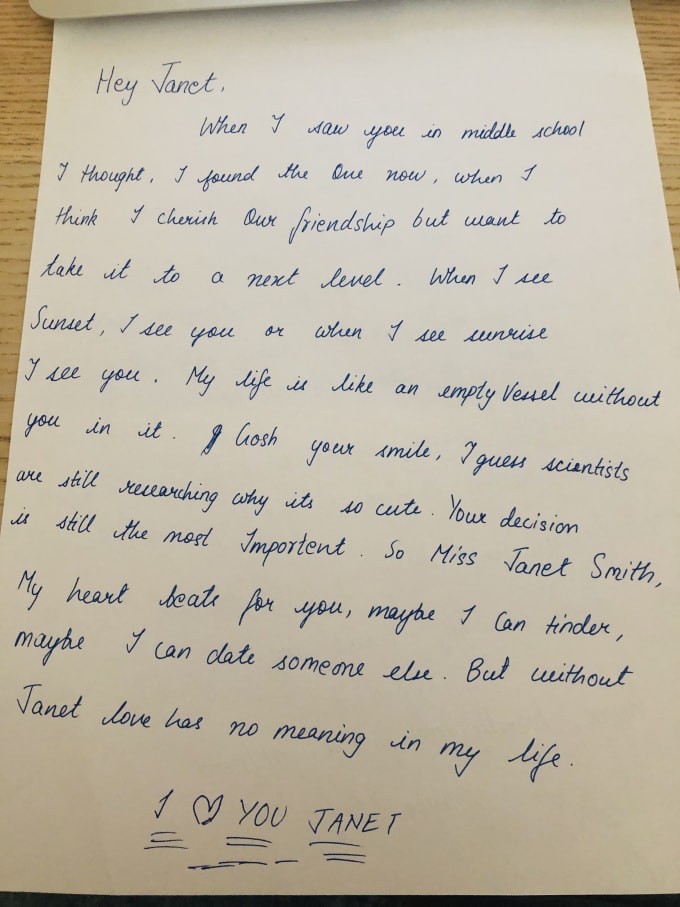 Hey Janet,
When I saw you in middle school
I thought, I found the One now, when I
think I cherish Our friendship but want to
take it to a next level. When I see
Sunset, I see you or when I see sunrise
I see you. My life is like an empty Vessel without
you in it. Gosh your smile, I guess scientists
are still researching why its so cute. Your decision
is still the most Importent. So Miss Janet Smith,
My heart beats for you, maybe I Can tinder,
maybe I can date someone else. But without
Janet love has no meaning in my life.
I ♡ YOU JANET